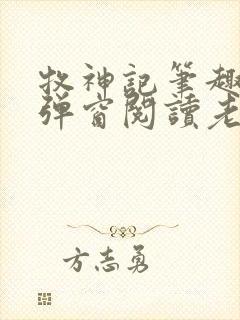 牧神記筆趣
彈窗閱讀老
方志勇